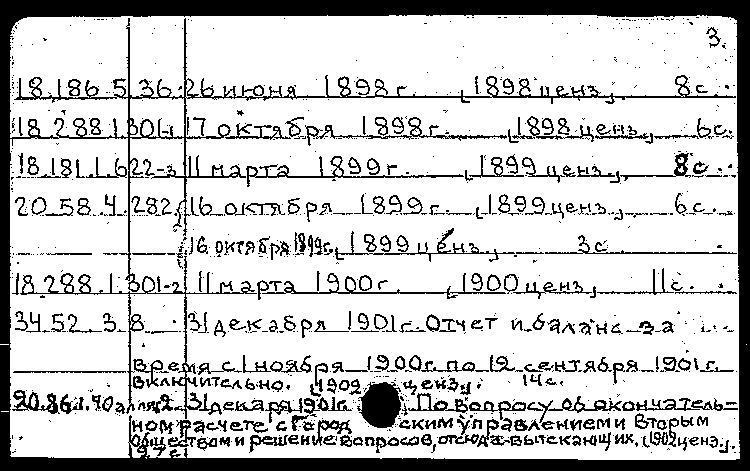 3.
18.186.5.36. 26 июня 1898 г. [1898 ценз.] 8 с.
18.288.1.301-1 17 октября 1898 г. [1898 ценз.] 6 с.
18.181.1.622-3 11 марта 1899 г. [1899 ценз.] 8 с.
20.58.4.282 16 октября 1899 г. [1899 ценз.] 6 с.
16 октября 1899 г. [1899 ценз.] 3 с.
18.288.1.301-2 11 марта 1900 г. [1900 ценз.] 11 с.
34.52.3.8 31 декабря 1901 г. Отчет и баланс за
время с 1 ноября 1900 г. по 12 сентября 1901 г.
включительно. [1902 ценз.]. 14 с.
20.86.1.70 31 декаря 1901 г. По вопросу об окончатель-
ном расчете с Город ским управлением и Вторым
обществом и решение вопросов, отсюда вытекающих. [1902 ценз.]
27 с.